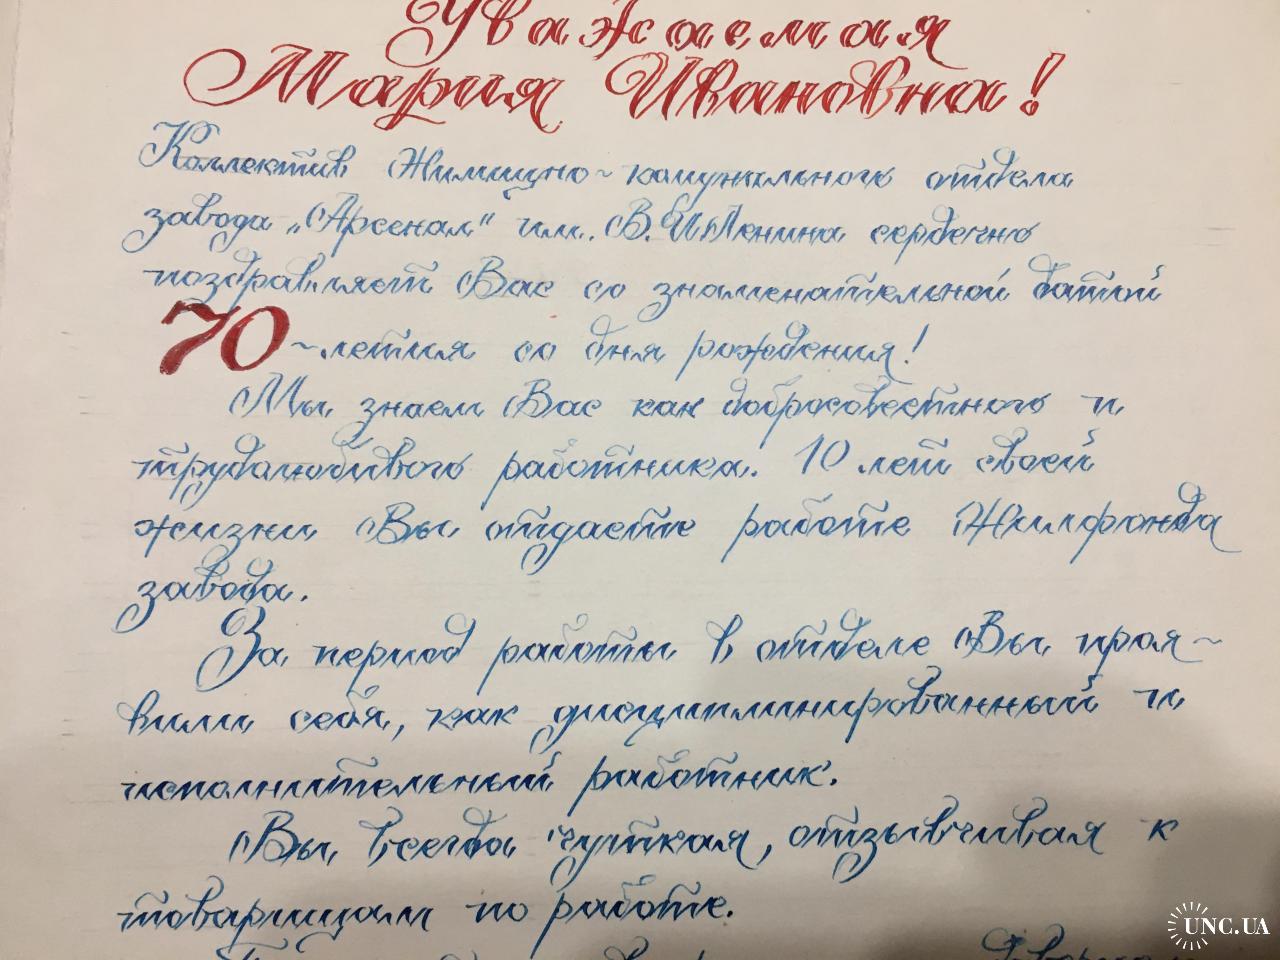 Уважаемая
Мария Ивановна!
Коллектив Жилищно-комунального отдела
завода „Арсенал" им. В.И.Ленина сердечно
поздравляет Вас со знаменательной датой
70-летия со дня рождения!
Мы знаем Вас как добросовестного и
трудолюбивого работника. 10 лет своей
жизни Вы отдаете работе Жилфонда
завода.
За период работы в отделе Вы проя-
вили себя, как дисциплинированный и
исполнительный работник.
Вы всегда чуткая, отзывчивая к
товарищам по работе.
UNC.UA